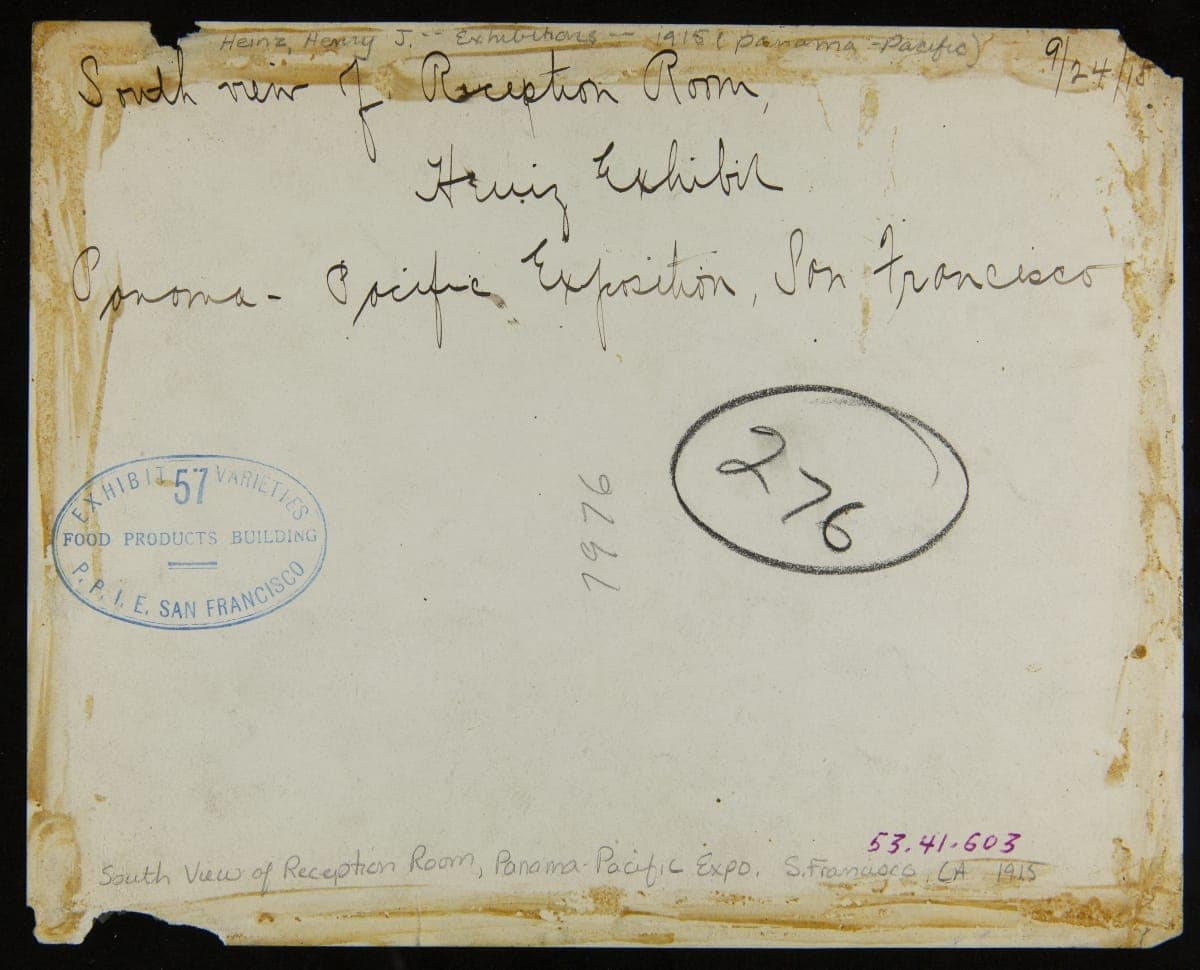 Heinz, Henry J. -- Exhibitions -- 1915 (Panama-Pacific)
9/24/15
South view of Reception Room,
Heinz Exhibit
Panama - Pacific Exposition, San Francisco
276
EXHIBIT 57 VARIETIES
FOOD PRODUCTS BUILDING
P. P. I. E. SAN FRANCISCO
1976
53.41.603
South View of Reception Room, Panama-Pacific Expo. S.Francisco, CA 1915